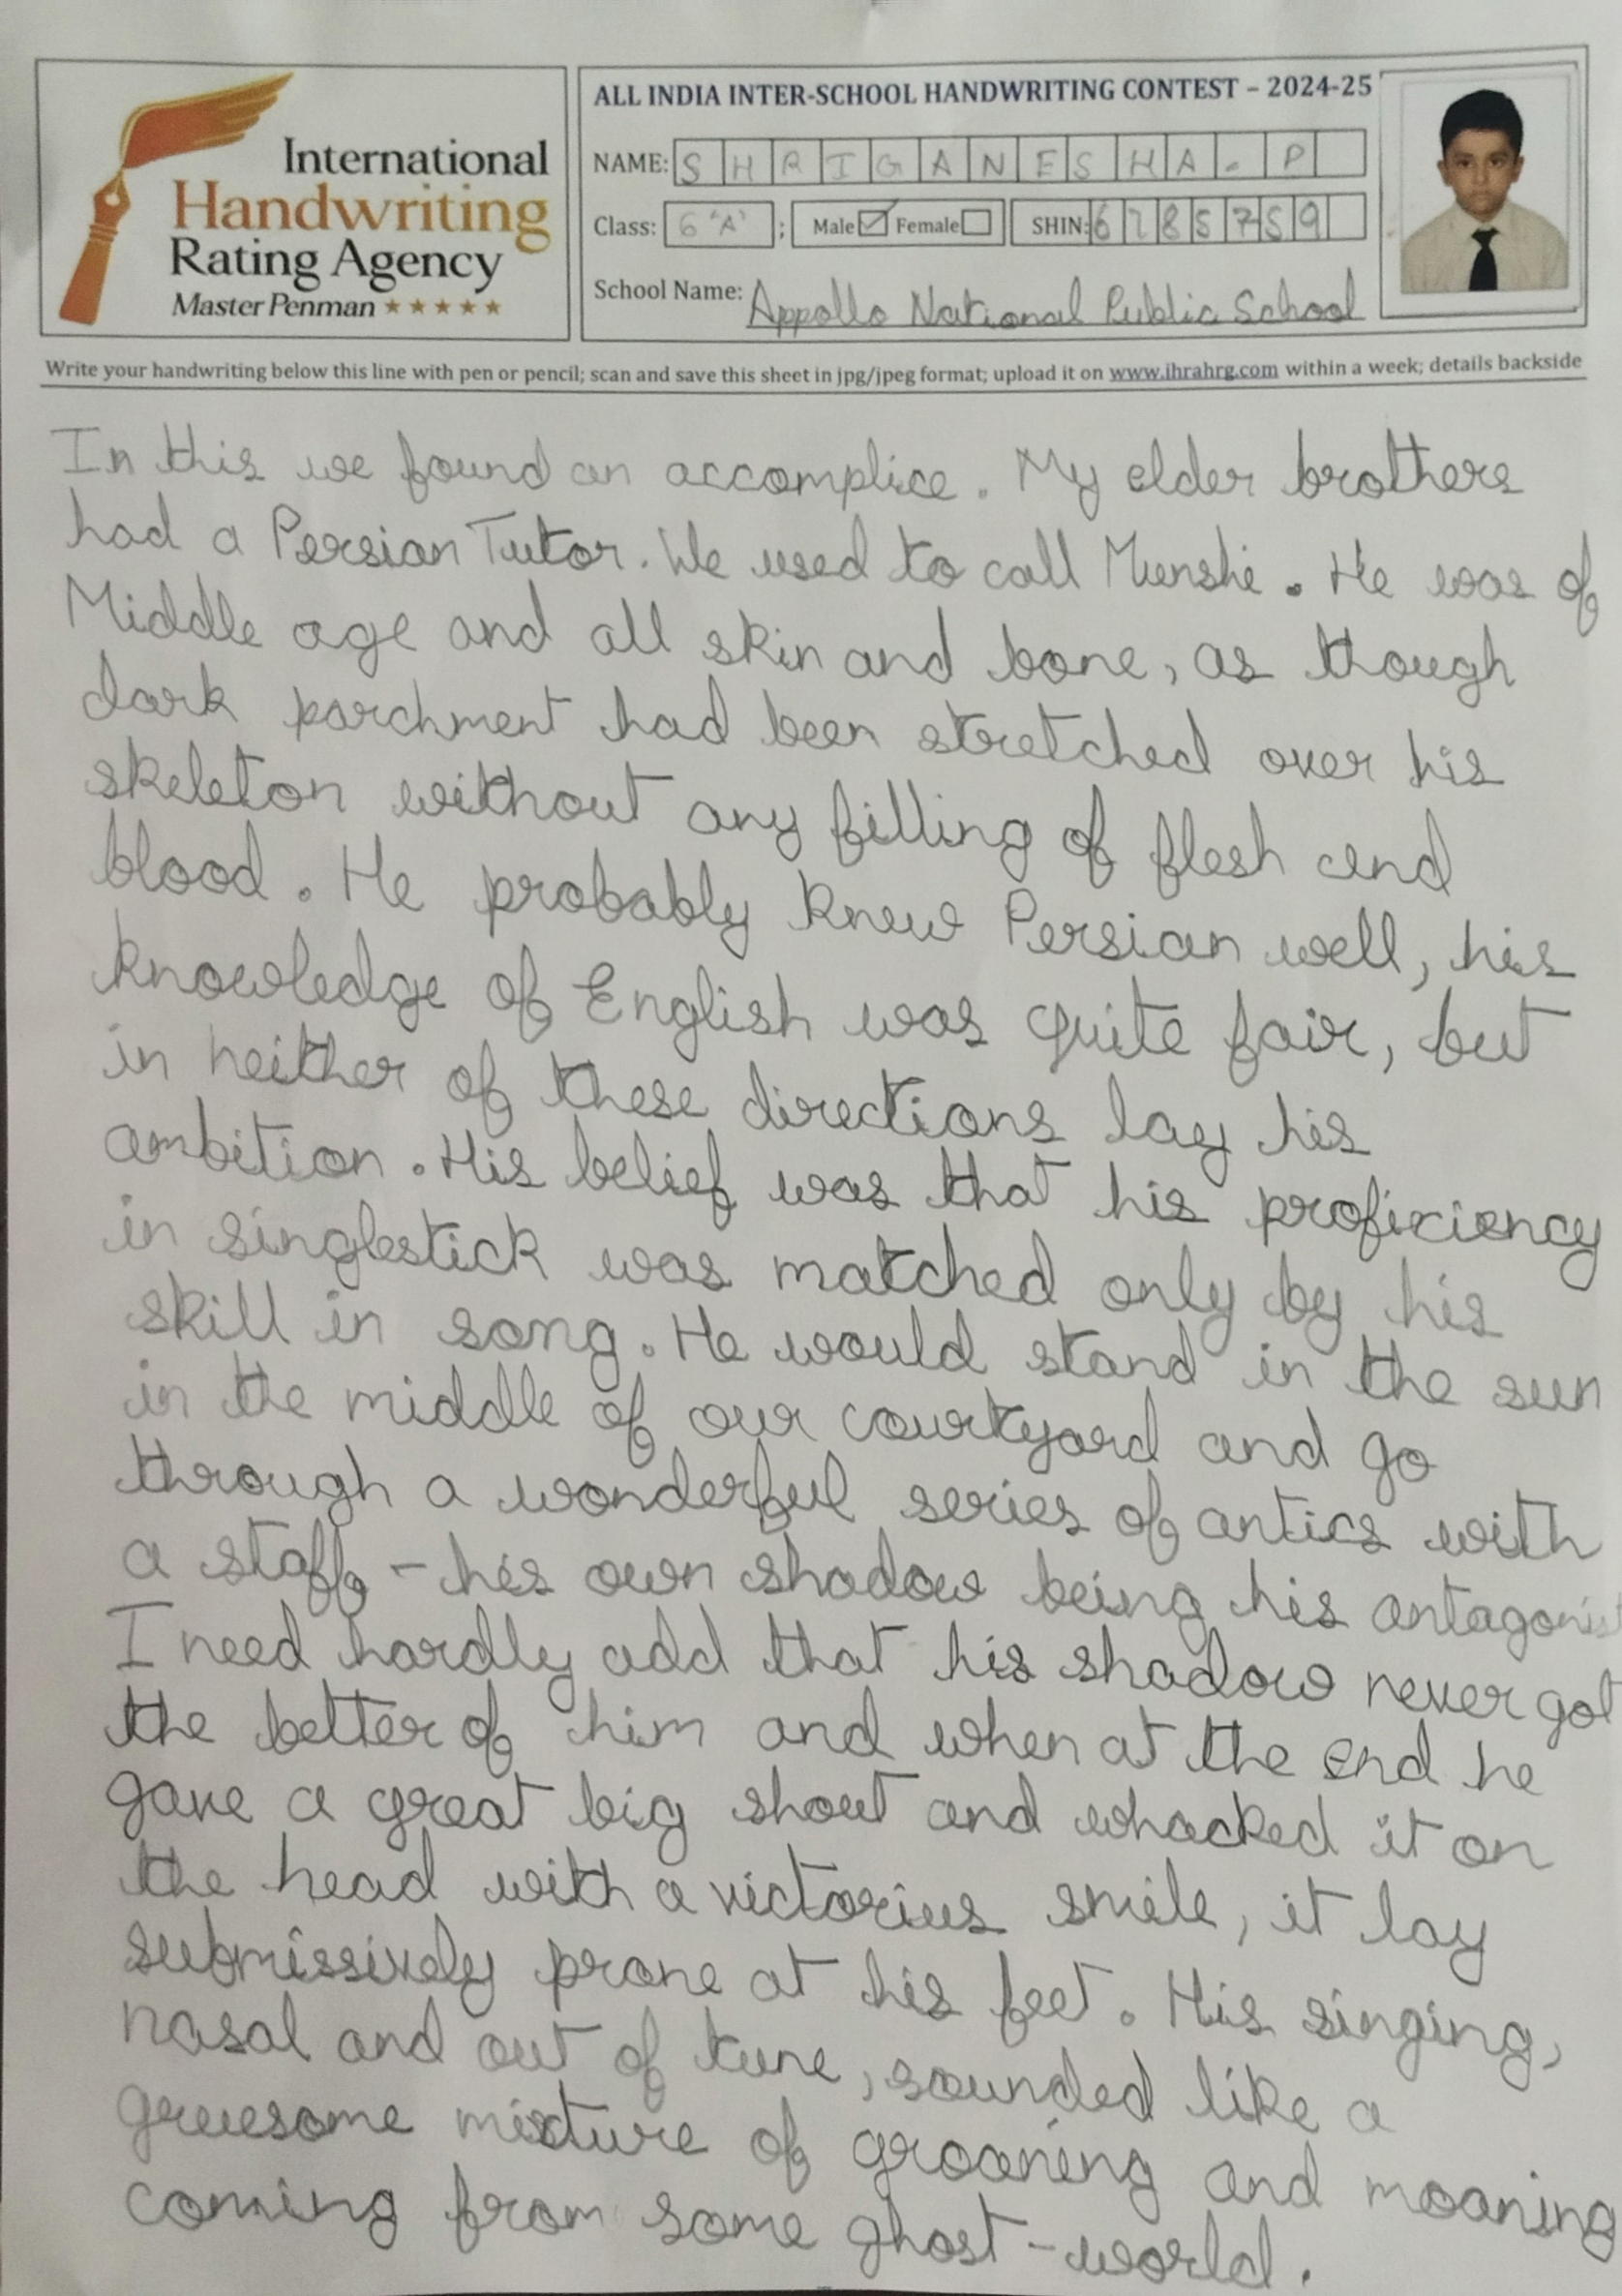 ALL INDIA INTER-SCHOOL HANDWRITING CONTEST – 2024-25
International
Handwriting
Rating Agency
Master Penman
NAME: SHRIGANESHA. P
Class: 6 'A' ; Male Female SHIN: 6785759
School Name: Appollo National Public School
Write your handwriting below this line with pen or pencil; scan and save this sheet in jpg/jpeg format; upload it on www.ihrahrg.com within a week; details backside
In this we found an accomplice. My elder brothers
had a Persian Tutor. We used to call Munshi. He was of
Middle age and all skin and bone, as though
dark parchment had been stretched over his
skeleton without any filling of flesh and
blood. He probably knew Persian well, his
knowledge of English was quite fair, but
in neither of these directions lay his
ambition. His belief was that his proficiency
in singlestick was matched only by his
skill in song. He would stand in the sun
in the middle of our courtyard and go
through a wonderful series of antics with
a staff – his own shadow being his antagonist
I need hardly add that his shadow never got
the better of him and when at the end he
gave a great big shout and whacked it on
the head with a victorius smile, it lay
submissively prone at his feet. His singing,
nasal and out of tune, sounded like a
gruesome mixture of groaning and moaning
coming from some ghost-world.